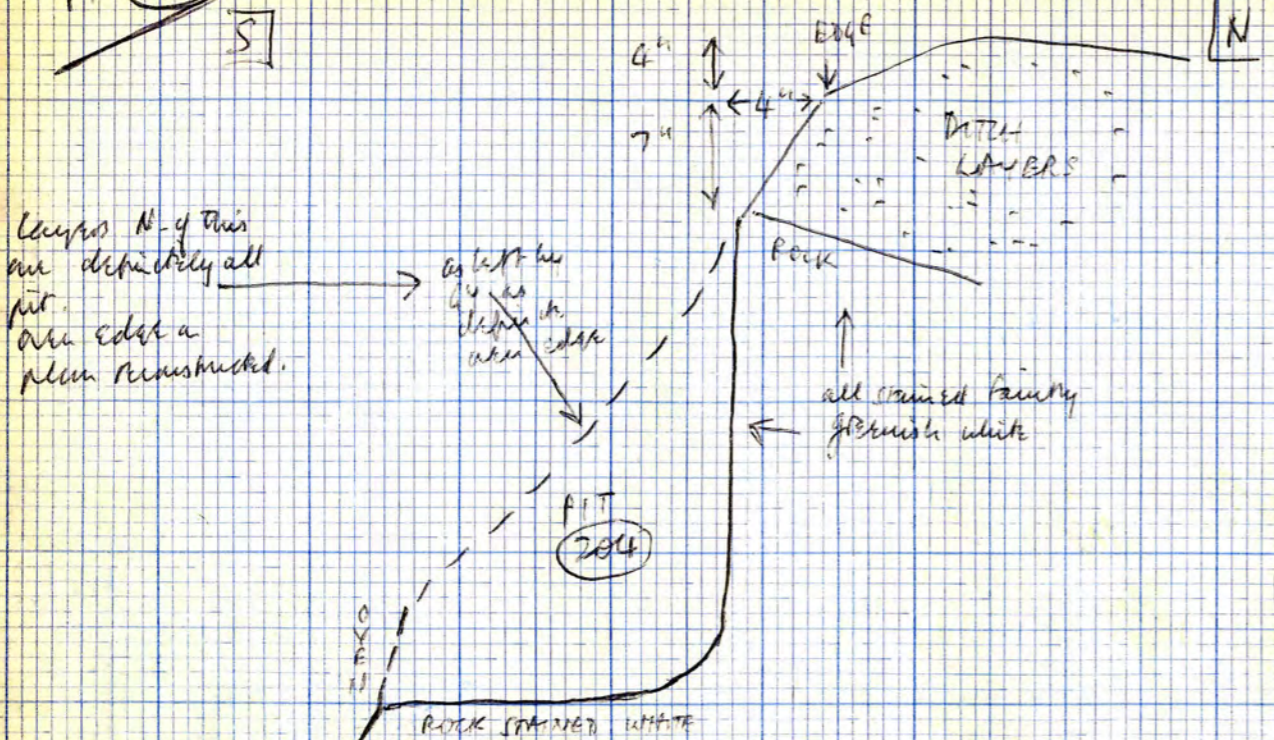 S
N
4"
EDGE
4"
7"
DITCH
LAYERS
ROCK
layers N. of this
are definitely all
pit.
oven edge on
plan reconstructed.
as left
as
oven edge
all stained faintly
greenish white
PIT
204
OVEN
ROCK STAINED WHITE